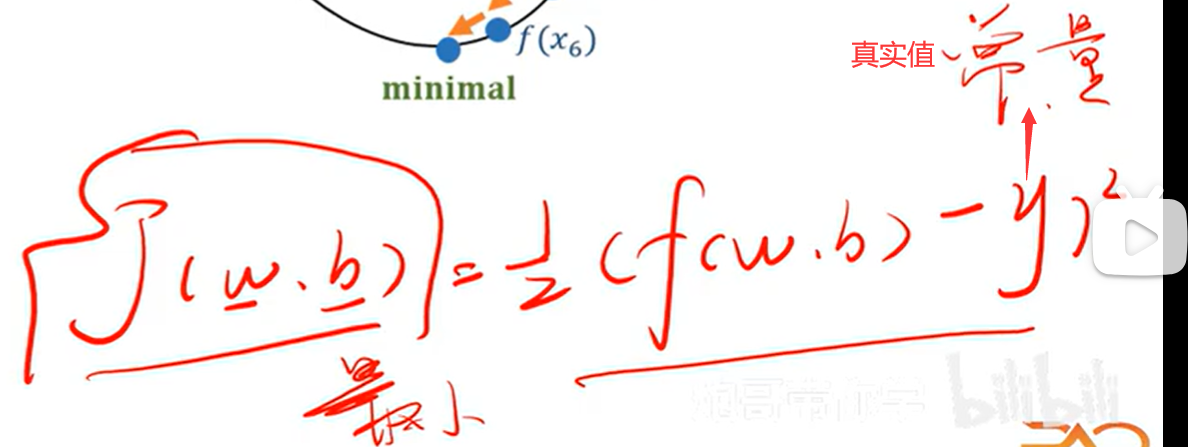 f(x₆)
minimal
真实值 常量
J(w,b) = 1/2 (f(w,b) - y)²
最小
炮哥带你学 bilibili